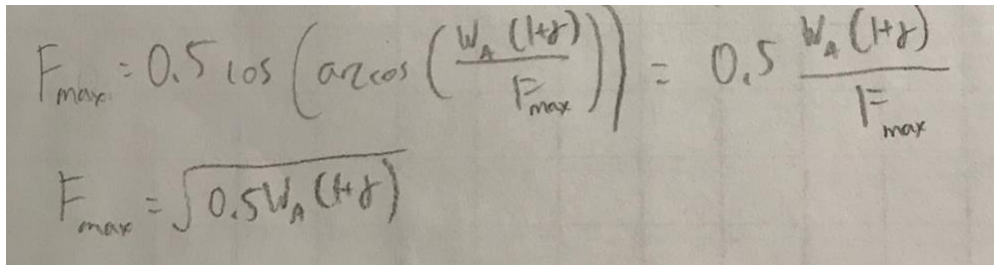 F_max = 0.5 cos(arccos(W_A (1+γ) / F_max)) = 0.5 W_A (1+γ) / F_max
F_max = √(0.5W_A (1+γ))